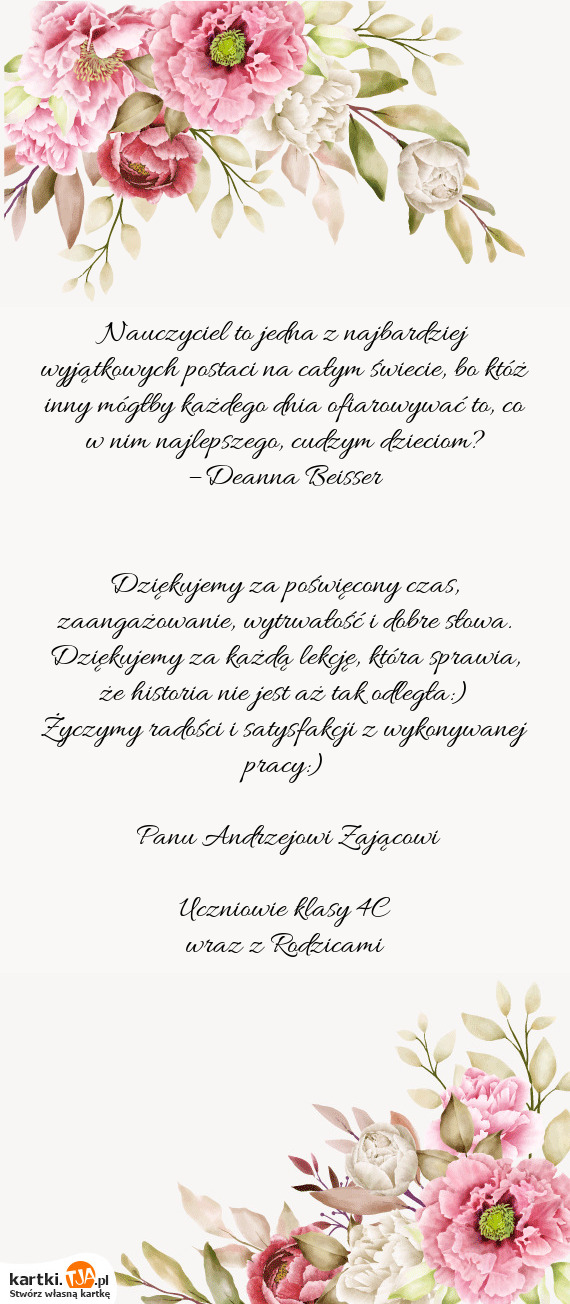 Nauczyciel to jedna z najbardziej
wyjątkowych postaci na całym świecie, bo któż
inny mógłby każdego dnia ofiarowywać to, co
w nim najlepszego, cudzym dzieciom?
– Deanna Beisser
Dziękujemy za poświęcony czas,
zaangażowanie, wytrwałość i dobre słowa.
Dziękujemy za każdą lekcję, która sprawia,
że historia nie jest aż tak odległa:)
Życzymy radości i satysfakcji z wykonywanej
pracy:)
Panu Andrzejowi Zającowi
Uczniowie klasy 4C
wraz z Rodzicami
kartki.TJA.pl
Stwórz własną kartkę